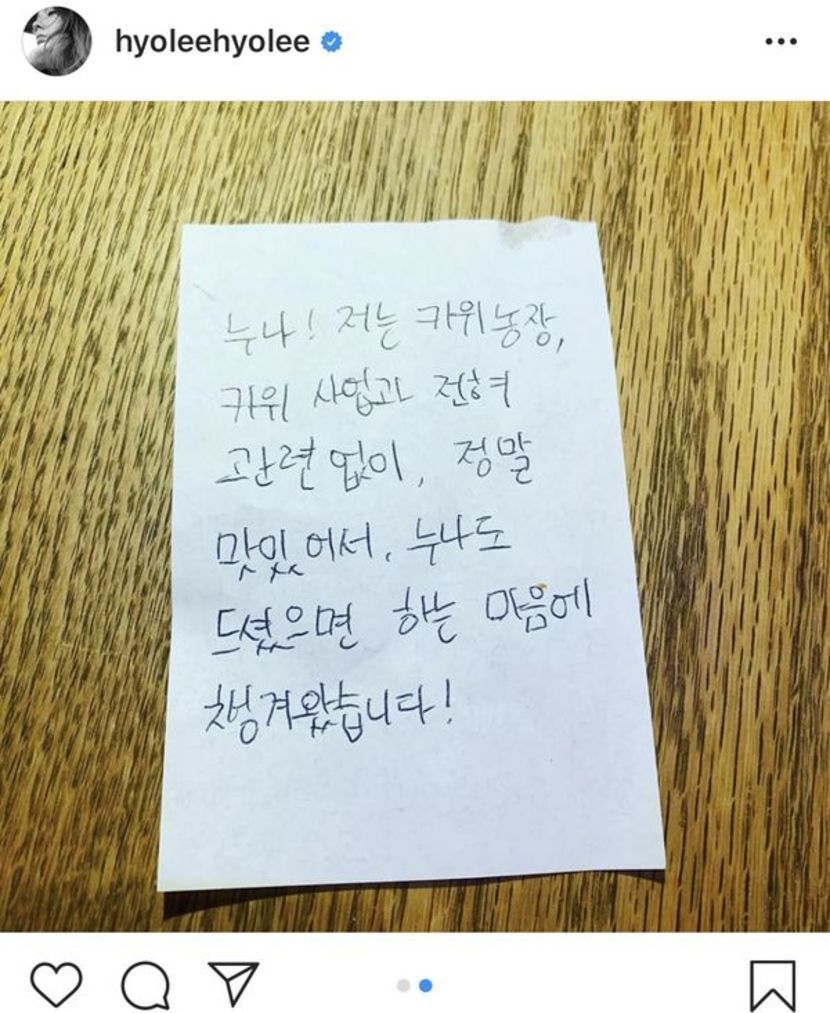 hyoleehyolee
누나! 저는 키위농장,
키위 사업과 전혀
관련 없이, 정말
맛있어서, 누나도
드셨으면 하는 마음에
챙겨왔습니다!